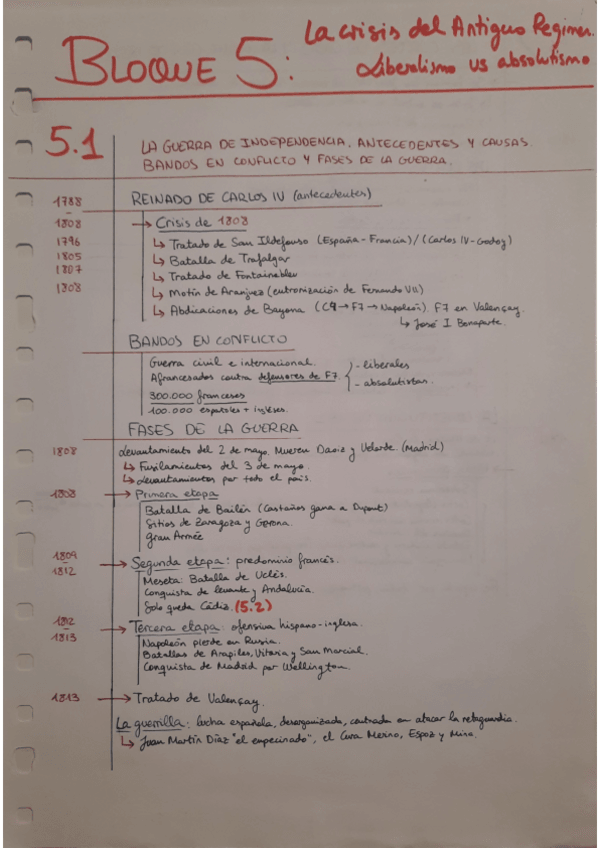 BLOQUE 5:
La crisis del Antiguo Regimen.
Liberalismo vs absolutismo
5.1
LA GUERRA DE INDEPENDENCIA, ANTECEDENTES Y CAUSAS
BANDOS EN CONFLICTO Y FASES DE LA GUERRA.
1788 - 1808
REINADO DE CARLOS IV (antecedentes)
→ Crisis de 1808
1796 ↳ Tratado de San Ildefonso (España-Francia)/(Carlos IV-Godoy)
1805 ↳ Batalla de Trafalgar
1807 ↳ Tratado de Fontainebleu
1808 ↳ Motín de Aranjuez (entronización de Fernando VII)
↳ Abdicaciones de Bayona (C4→F7→Napoleón). F7 en Valençay.
↳ José I Bonaparte.
BANDOS EN CONFLICTO
Guerra civil e internacional.
Afrancesados contra defensores de F7.
- liberales
- absolutistas.
300.000 franceses
100.000 españoles + ingleses.
FASES DE LA GUERRA
1808 Levantamiento del 2 de mayo. Mueren Daoiz y Velarde. (Madrid)
↳ Fusilamientos del 3 de mayo.
↳ Levantamientos por todo el país.
1808 → Primera etapa
Batalla de Bailén (Castaños gana a Dupont)
Sitios de Zaragoza y Gerona.
Gran Armée
1809 - 1812 → Segunda etapa: predominio francés.
Meseta: Batalla de Uclés.
Conquista de levante y Andalucía.
Solo queda Cádiz. (5.2)
1812 - 1813 → Tercera etapa: ofensiva hispano-inglesa.
Napoleón pierde en Rusia.
Batallas de Arapiles, Vitoria y San Marcial.
Conquista de Madrid por Wellington.
1813 → Tratado de Valençay.
La guerrilla: lucha española, desorganizada, centrada en atacar la retaguardia.
↳ Juan Martín Díaz "el empecinado", el Cura Merino, Espoz y Mina.